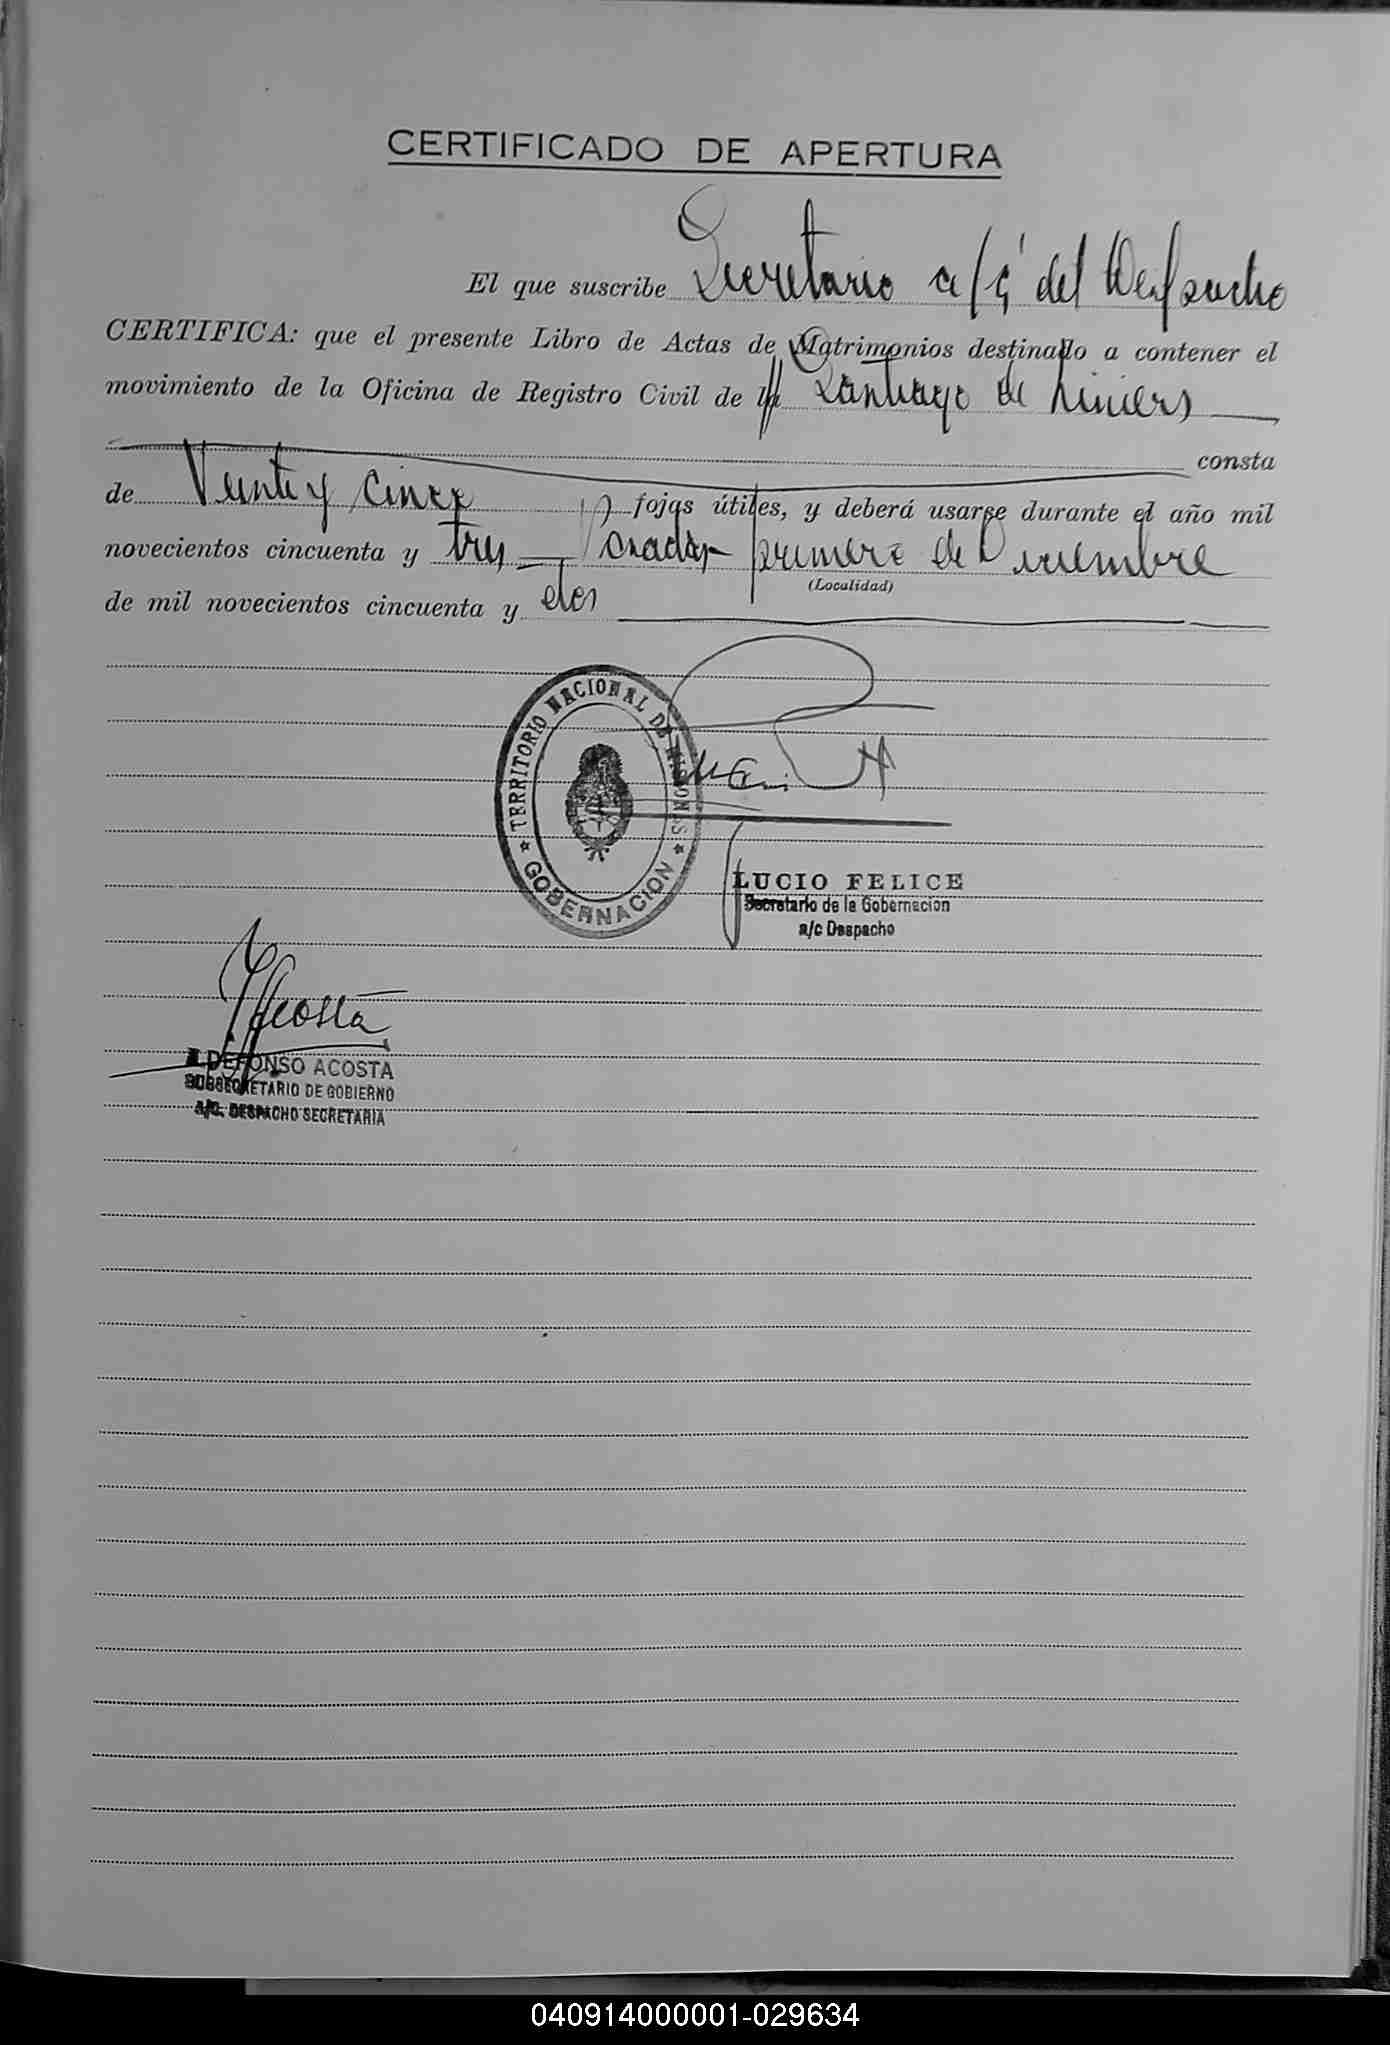 CERTIFICADO DE APERTURA
El que suscribe Secretario a/c del Despacho
CERTIFICA: que el presente Libro de Actas de Matrimonios destinado a contener el
movimiento de la Oficina de Registro Civil de la Santiago de Liniers
consta
de Veinte y cinco fojas útiles, y deberá usarse durante el año mil
novecientos cincuenta y tres Posadas primero de Diciembre
(Localidad)
de mil novecientos cincuenta y dos
TERRITORIO NACIONAL DE MISIONES
GOBERNACION
LUCIO FELICE
Secretario de la Gobernacion
a/c Despacho
Acosta
ILDEFONSO ACOSTA
SUBSECRETARIO DE GOBIERNO
A/C. DESPACHO SECRETARIA
040914000001-029634